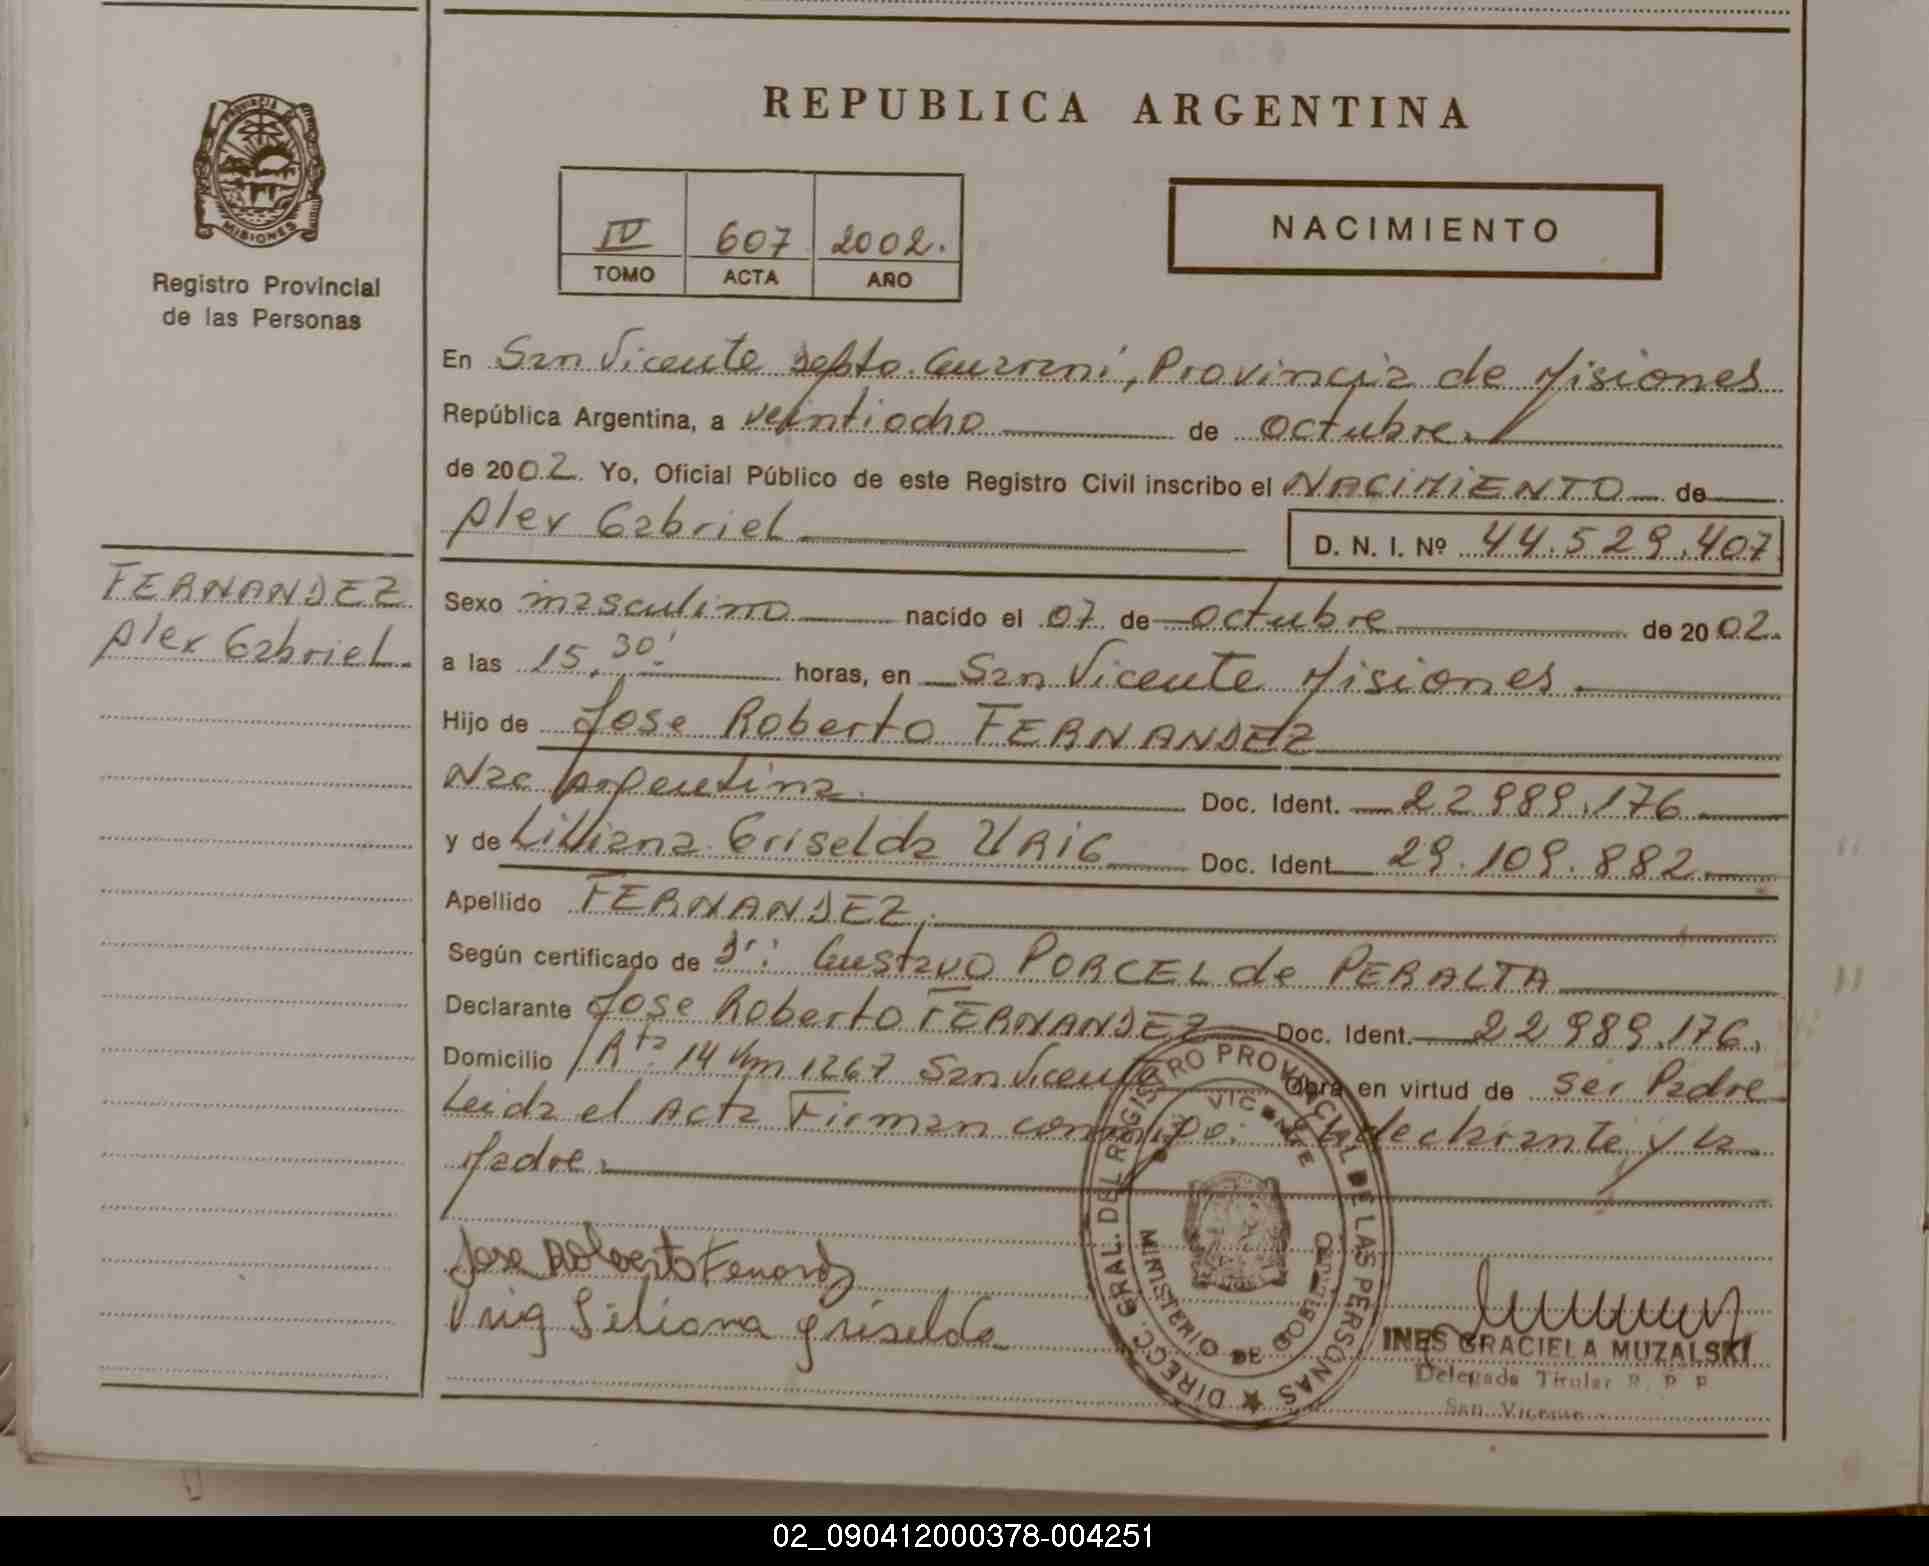 REPUBLICA ARGENTINA
PROVINCIA DE MISIONES
Registro Provincial
de las Personas
IV 607 2002.
TOMO ACTA AÑO
NACIMIENTO
En San Vicente Depto. Guarani, Provincia de Misiones
República Argentina, a veintiocho de octubre.
de 2002. Yo, Oficial Público de este Registro Civil inscribo el NACIMIENTO de
Alex Gabriel D. N. I. Nº 44.529.407
FERNANDEZ
Alex Gabriel.
Sexo masculino nacido el 07 de octubre de 2002.
a las 15,30' horas, en San Vicente Misiones.
Hijo de Jose Roberto FERNANDEZ
Nac Argentina. Doc. Ident. 22989.176
y de Liliana Griselda URIG Doc. Ident. 29.109.882.
Apellido FERNANDEZ.
Según certificado de Dr: Gustavo PORCEL de PERALTA
Declarante Jose Roberto FERNANDEZ Doc. Ident. 22989.176.
Domicilio Rta 14 Km 1267 San Vicente Obra en virtud de ser Padre
Leida el Acta Firman conmigo: el declarante y la
Madre.
Jose Roberto Fernandez
Urig Liliana Griselda
DIRECC. GRAL. DEL REGISTRO PROVINCIAL DE LAS PERSONAS
VICENTE
MINISTERIO DE GOBIERNO
INES GRACIELA MUZALSKI
Delegada Titular R. P. P.
San Vicente
02_090412000378-004251